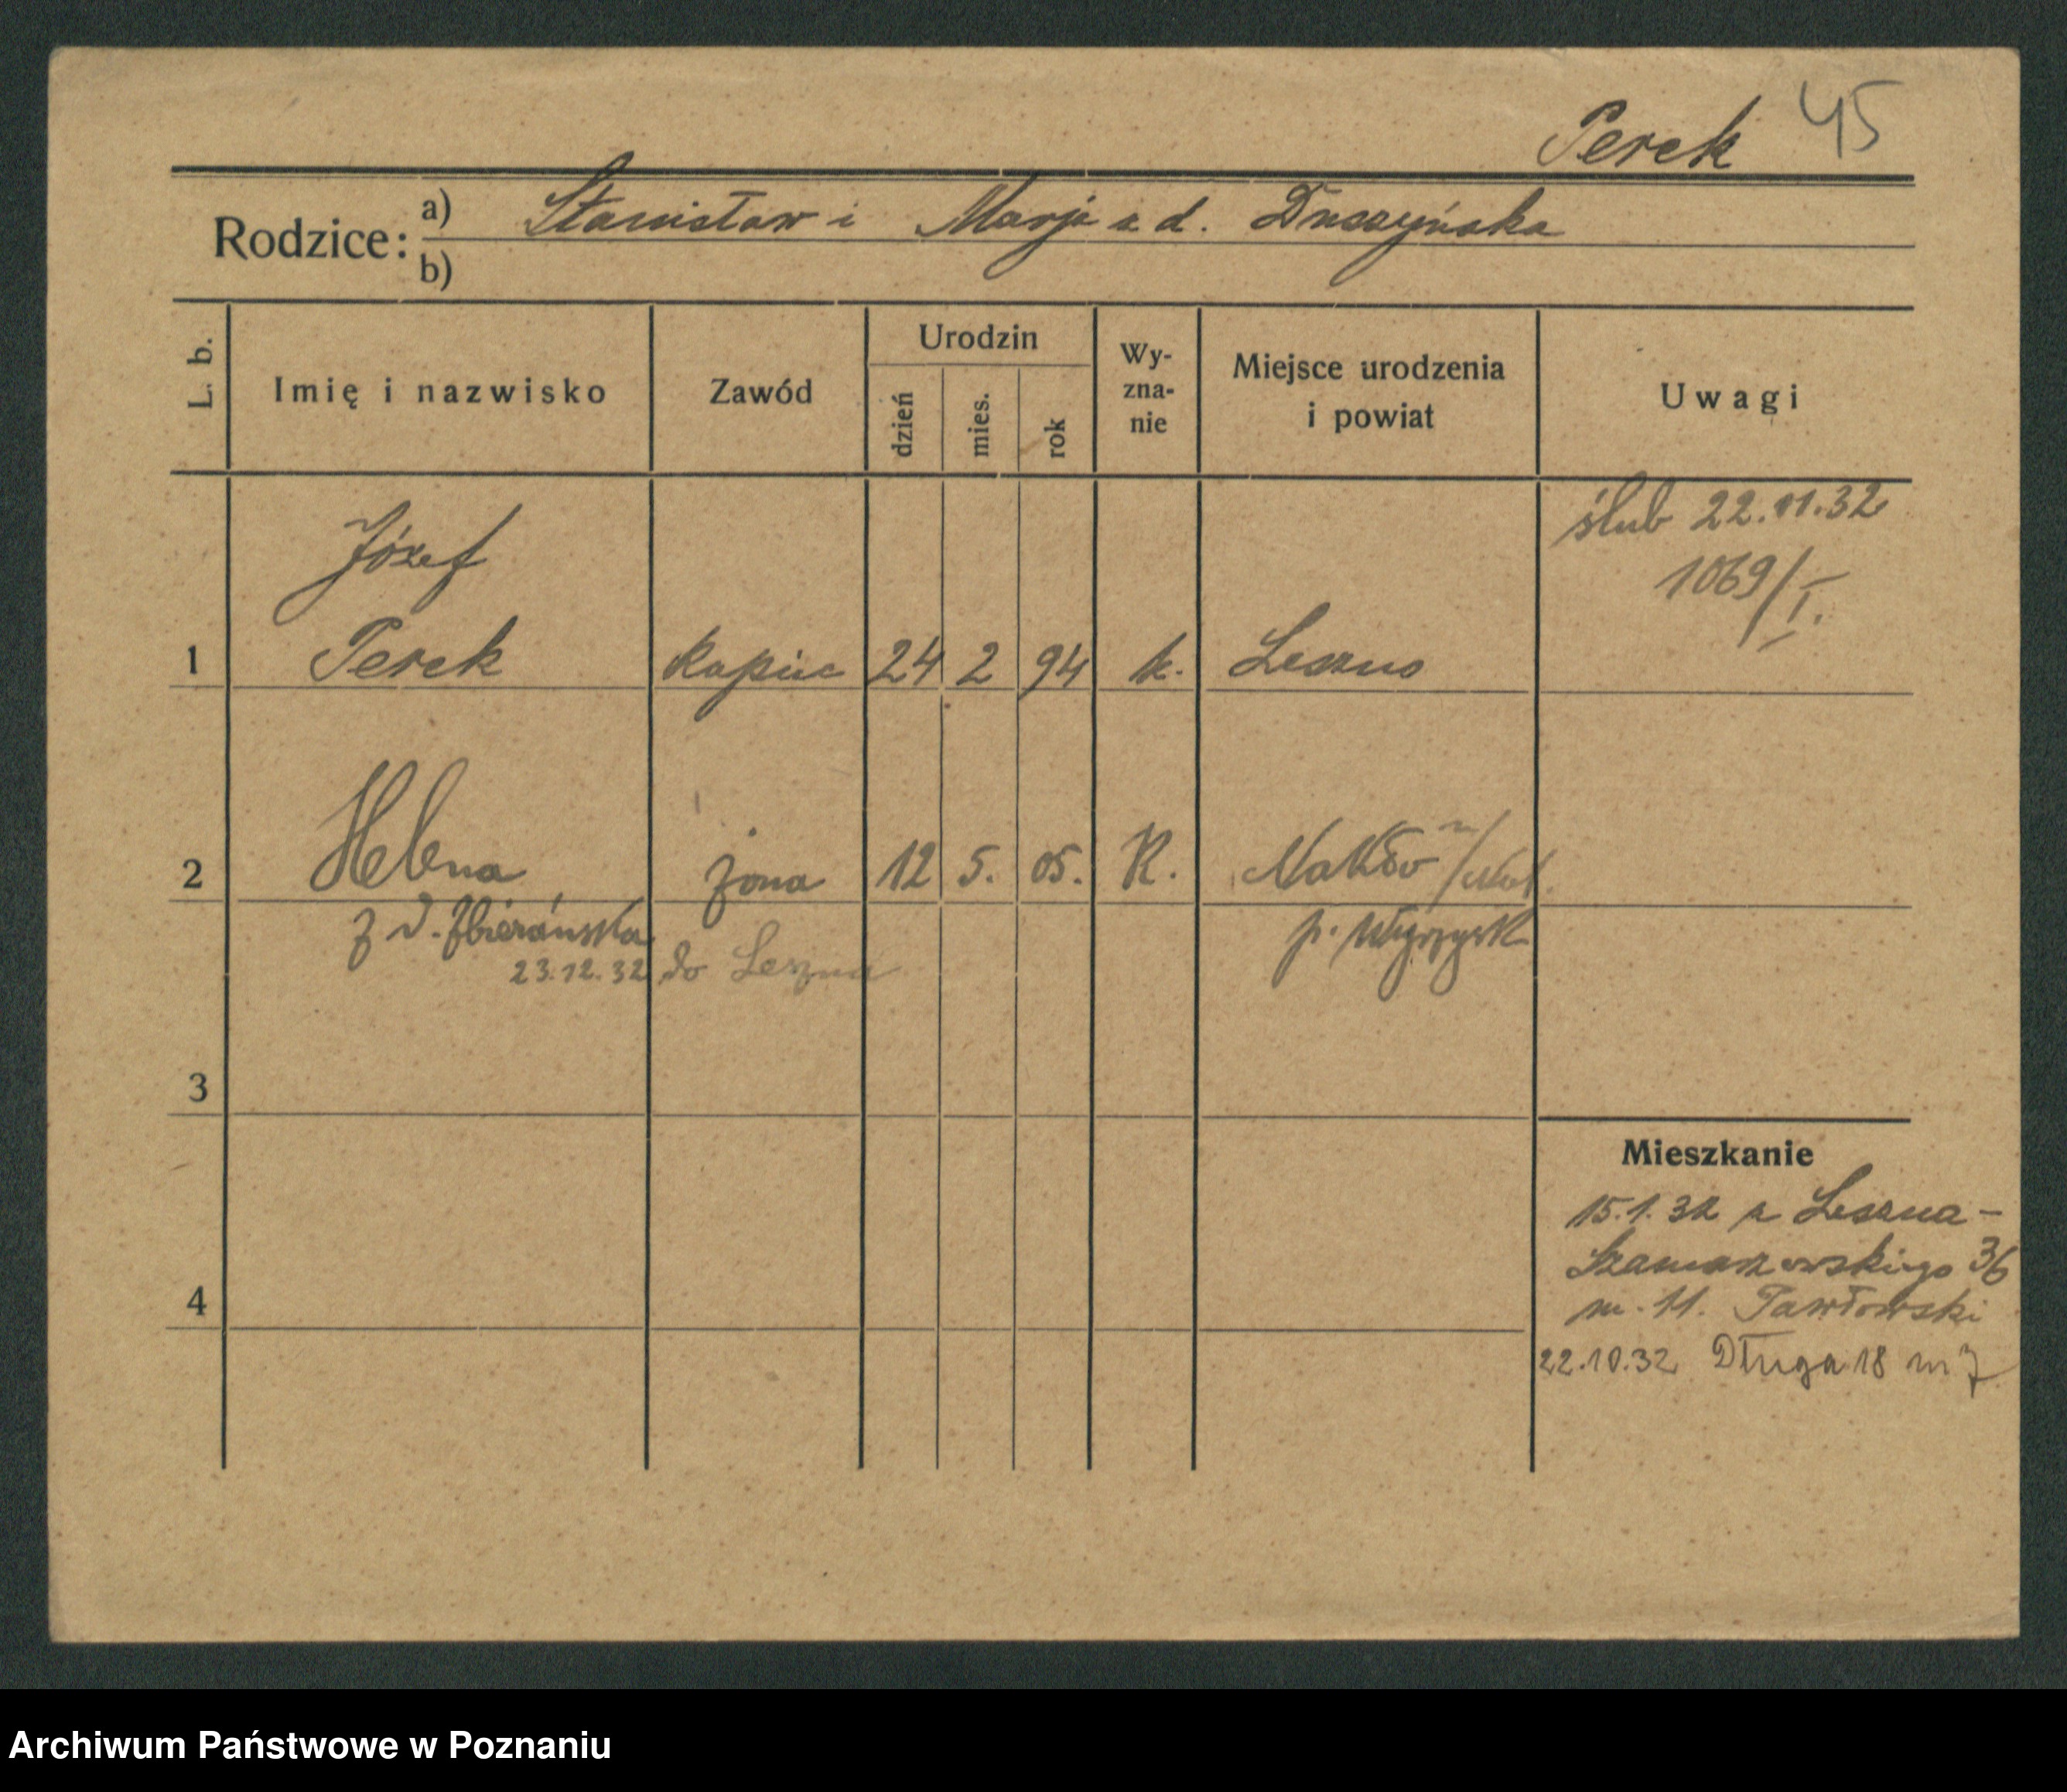 Perek 45
Rodzice: a) Stanisław i Marja z d. Duszyńska
b)
L. b.
Imię i nazwisko
Zawód
Urodzin
dzień
mies.
rok
Wy-
zna-
nie
Miejsce urodzenia
i powiat
Uwagi
ślub 22.11.32
1069/I.
Józef
1 Perek kupiec 24 2 94 k. Leszno
2 Helena żona 12 5. 05. K. Nakło n/Not.
z d. Zbierańska p. Wyrzysk
23.12.32 do Leszna
3
Mieszkanie
15.1.32 z Leszna -
Szamarzewskiego 36
m. 11. Pawłowski
4
22.10.32 Długa 18 m 7
Archiwum Państwowe w Poznaniu